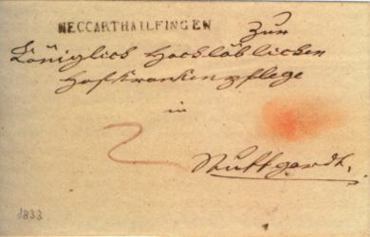 NECCARTHAILFINGEN
Zur
Königlich Hochlöblichen
Hofkrankenpflege
in
2
Stuttgardt.
1833